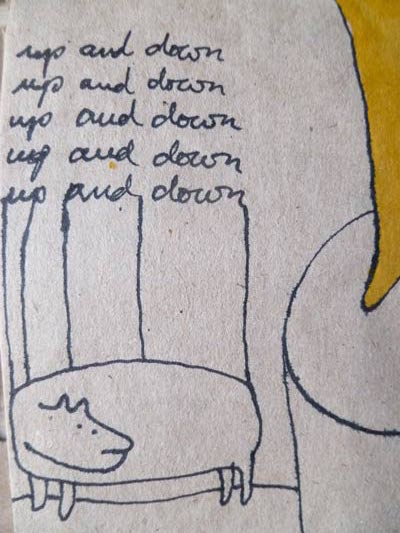 up and down
up and down
up and down
up and down
up and down